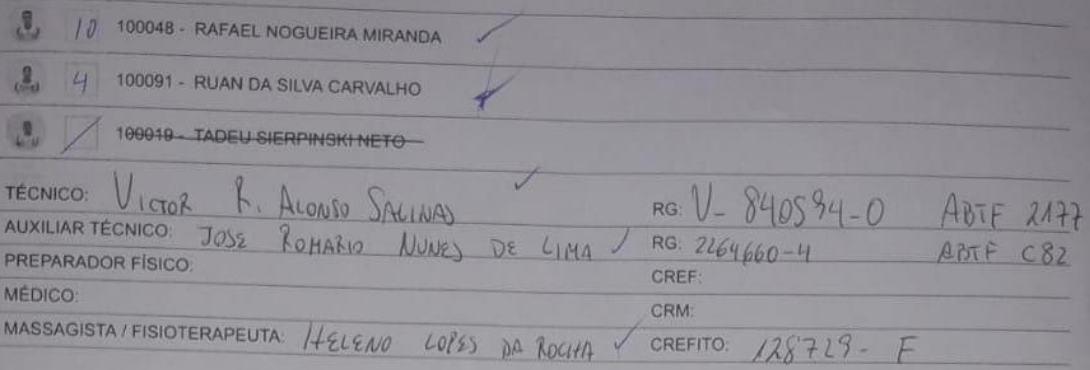 10 100048 - RAFAEL NOGUEIRA MIRANDA
4 100091 - RUAN DA SILVA CARVALHO
100019 - TADEU SIERPINSKI NETO
TÉCNICO: VICTOR R. ALONSO SALINAS RG: V-840594-0 ABTF 2177
AUXILIAR TÉCNICO: JOSE ROMARIO NUNES DE LIMA RG: 2264660-4 ABTF C82
PREPARADOR FÍSICO: CREF:
MÉDICO: CRM:
MASSAGISTA / FISIOTERAPEUTA: HELENO LOPES DA ROCHA CREFITO: 128729-F